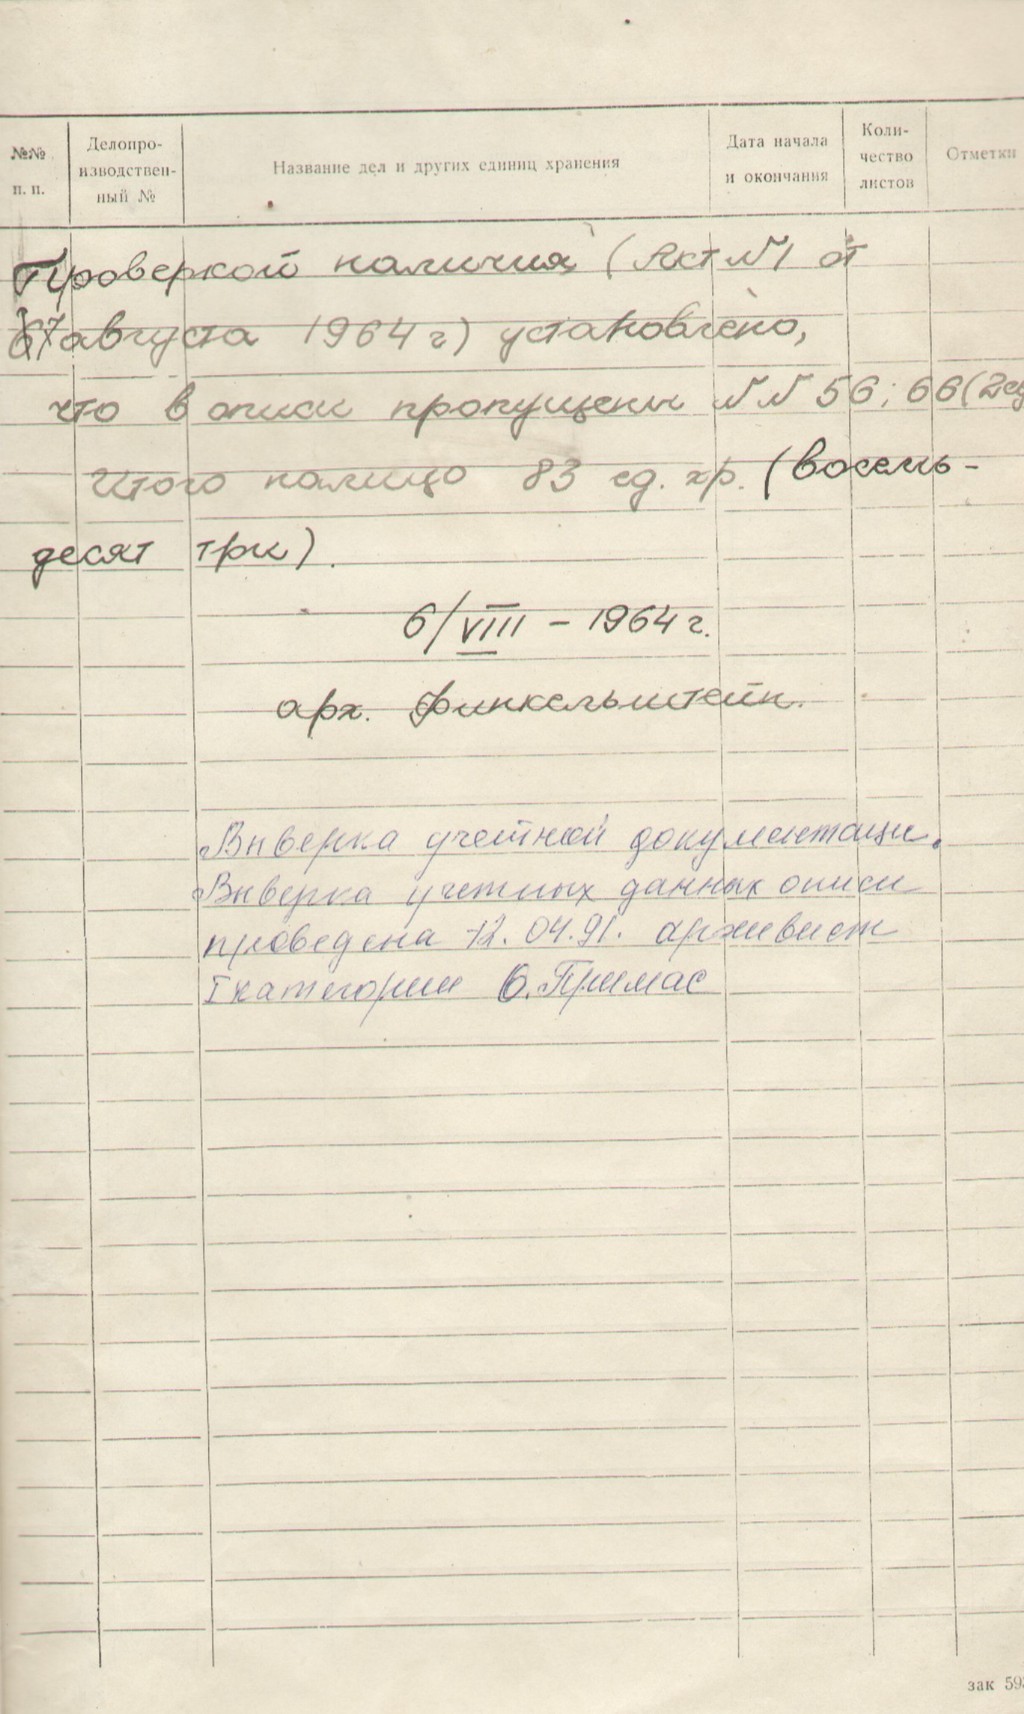 №№ п. п.
Делопро-
изводствен-
ный №
Название дел и других единиц хранения
Дата начала
и окончания
Коли-
чество
листов
Отметки
Проверкой наличия (Акт №1 от
7 августа 1964 г) установлено,
что в описи пропущены №№ 56; 66 (2 ед
Итого налицо 83 ед. хр. (восемь-
десят три).
6/VIII – 1964 г.
арх. Финкельштейн.
Выверка учетной документации.
Выверка учетных данных описи
проведена 12.04.91. архивист
I категории О. Примас
зак 595